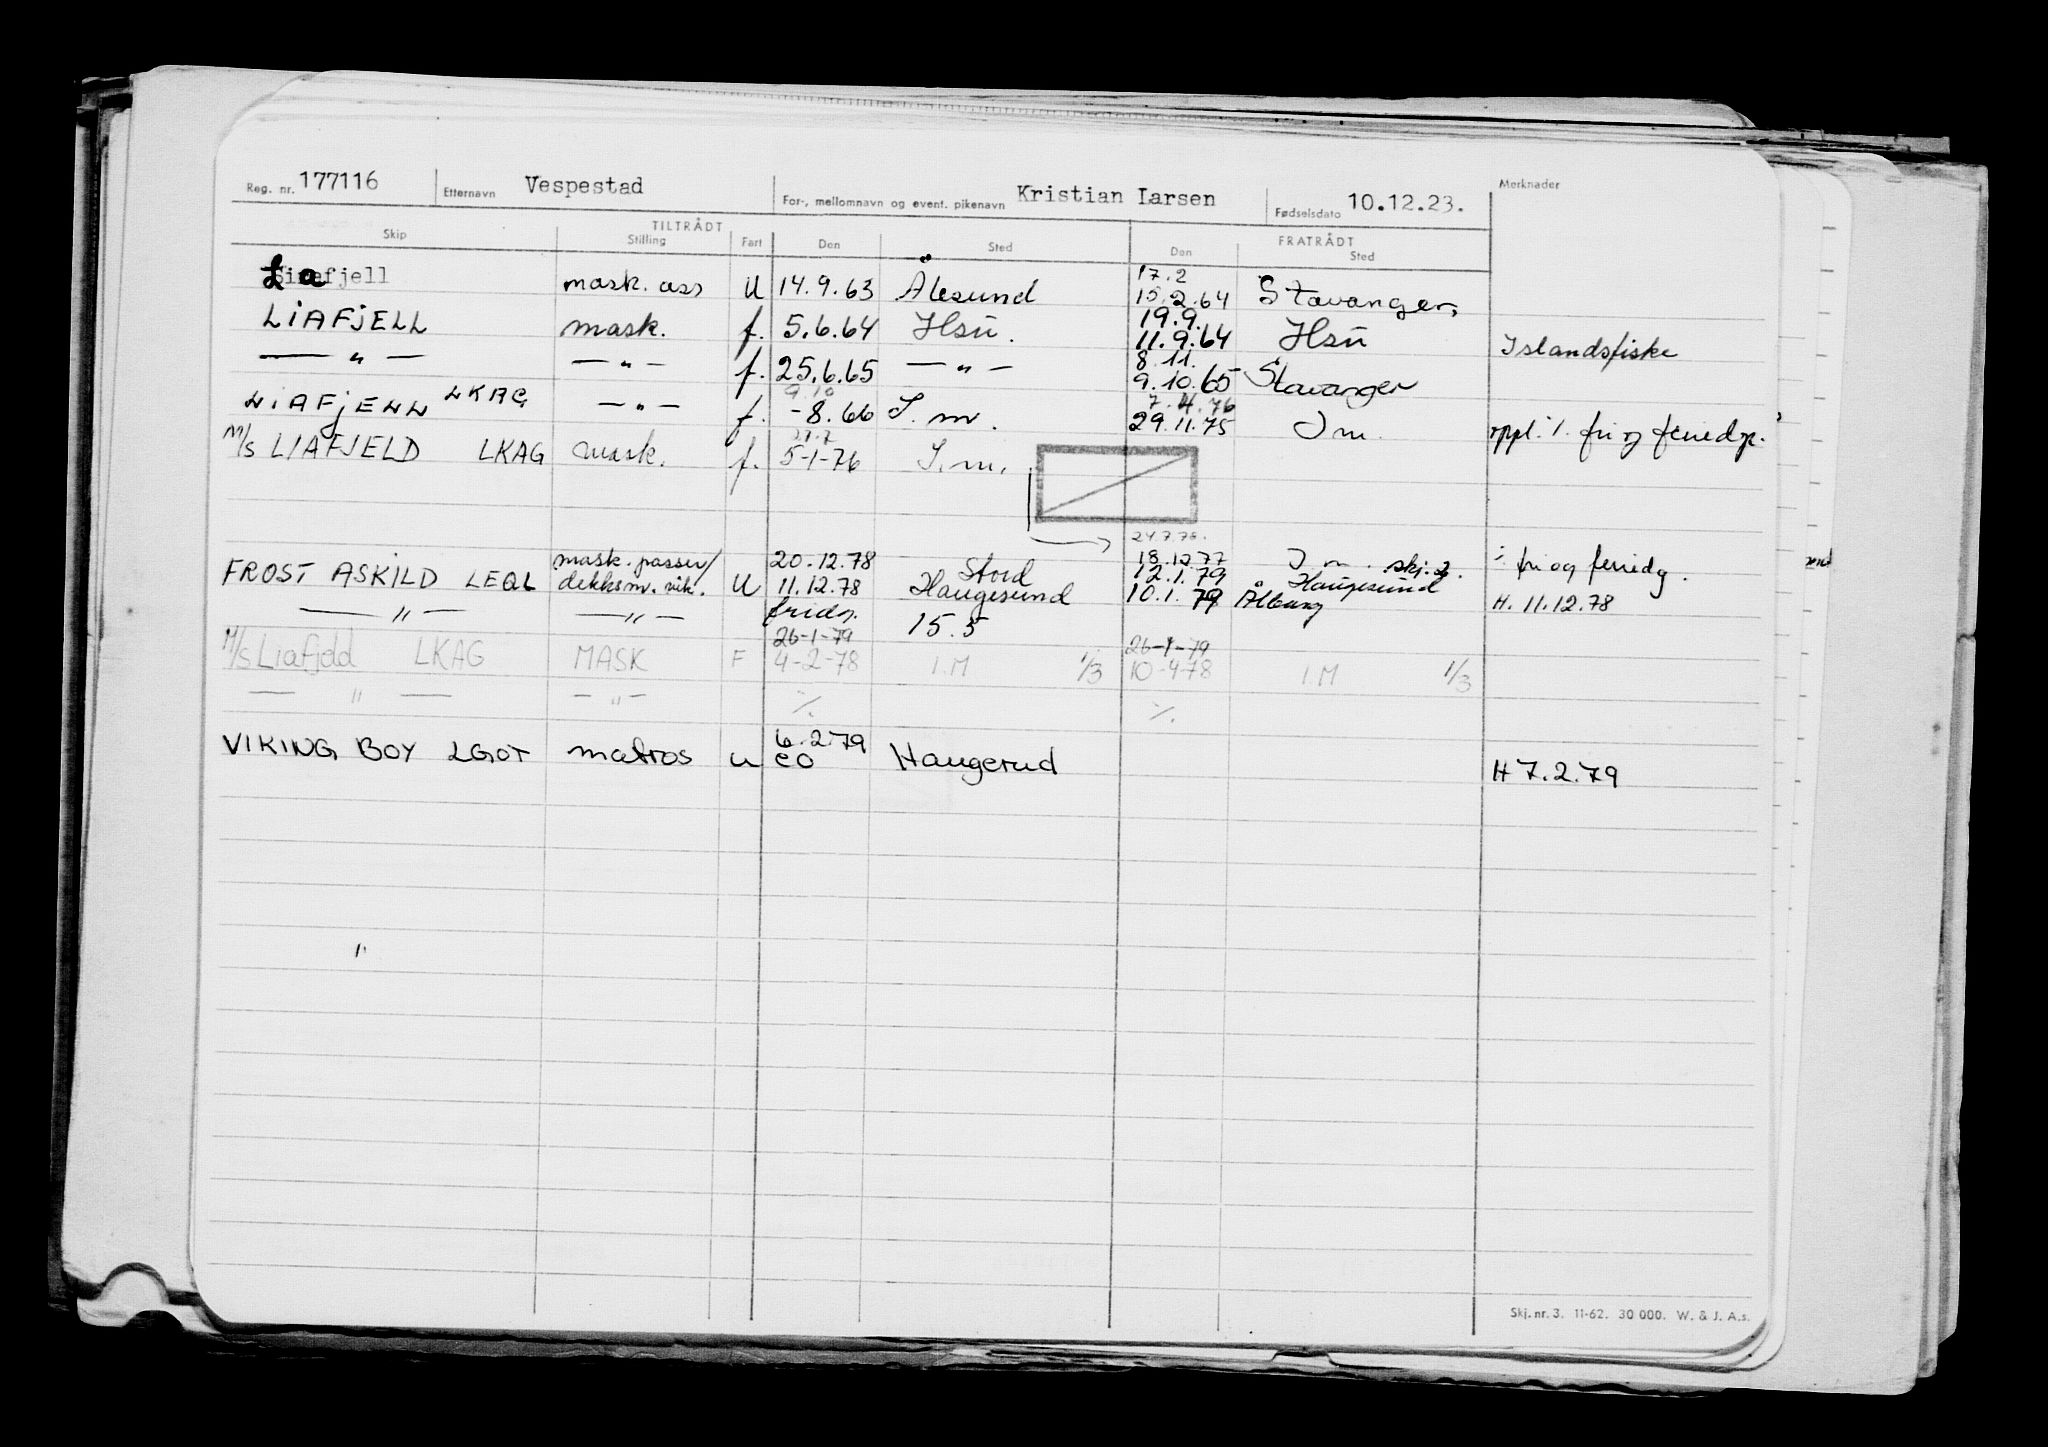 Reg. nr. 177116 Etternavn Vespestad For-, mellomnavn og event. pikenavn Kristian Larsen Fødselsdato 10.12.23. Merknader
TILTRÅDT FRATRÅDT
Skip Stilling Fart Den Sted Den Sted
17.2
Liafjell mask. ass U 14.9.63 Ålesund 15.2.64 Stavanger,
19.9.
LIAFJELL mask. f. 5.6.64 Hsü. 11.9.64 Hsü Islandsfiske
8.11.
— " — — " — f. 25.6.65 — " — 9.10.65 Stavanger
9.10 7.4.76
LIAFJELL LKAG — " — f. -8.66 I.m. 29.11.75 I m. oppl. i. fri og feriedg.
27.7
M/S LIAFJELD LKAG mask. f. 5-1-76 I.m.
24.7.78.
18.12.77 I m. skj. 2. i fri og feriedg.
mask. passer/ 20.12.78 Stord 12.1.79 Haugesund
FROST ASKILD LEQL dekksm. vik. U 11.12.78 Haugesund 10.1.79 Ålborg H. 11.12.78
— " — — " — fridg. 15.5
26-1-79 26-1-79
M/S Liafjeld LKAG MASK F 4-2-78 I.M 1/3 10-4-78 I.M 1/3
— " — — " — ./. ./.
6.2.79
VIKING BOY LGOT matros u eo Haugerud H 7.2.79
"
Skj. nr. 3. 11-62. 30 000. W. & J. A.s.